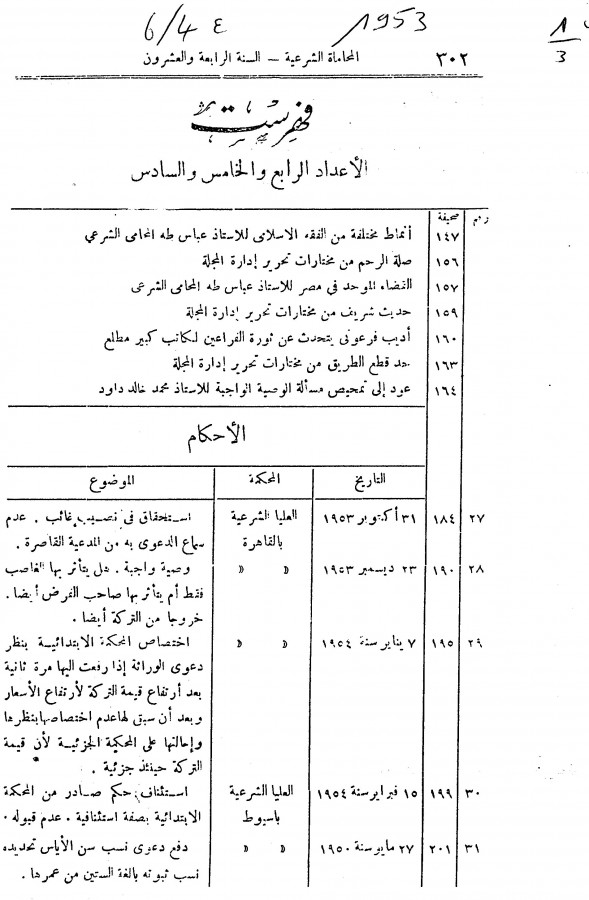 6/4 ٤ 1953 1
3
٣٠٢ المحاماة الشرعية – السنة الرابعة والعشرون
فهرست
الأعداد الرابع والخامس والسادس
رقم صحيفة
١٤٧ أنماط مختلفة من الفقه الاسلامى للاستاذ عباس طه المحامى الشرعي
١٥٦ صلة الرحم من مختارات تحرير إدارة المجلة
١٥٧ القضاء الموحد في مصر للاستاذ عباس طه المحامى الشرعى
١٥٩ حديث شريف من مختارات تحرير إدارة المجلة
١٦٠ أديب فرعونى يتحدث عن ثورة الفراعين لكاتب كبير مطلع
١٦٣ حد قطع الطريق من مختارات تحرير إدارة المجلة
١٦٤ عود إلى تمحيص مسألة الوصية الواجبة للاستاذ محمد خالد داود
الأحكام
التاريخ المحكمة الموضوع
٢٧ ١٨٤ ٣١ أكتوبر ١٩٥٣ العليا الشرعية استحقاق فى نصيب غائب . عدم
بالقاهرة سماع الدعوى به من المدعية القاصرة .
٢٨ ١٩٠ ٢٣ ديسمبر ١٩٥٣ » » وصية واجبة . هل يتأثر بها العاصب
فقط أم يتأثر بها صاحب الفرض أيضا .
خروجا من التركة أيضا .
٢٩ ١٩٥ ٧ يناير سنة ١٩٥٤ » » اختصاص المحكمة الابتدائية بنظر
دعوى الوراثة إذا رفعت اليها مرة ثانية
بعد أرتفاع قيمة التركة لأرتفاع الأسعار
وبعد أن سبق لها عدم اختصاصها بنظرها
وإحالتها على المحكمة الجزئية لأن قيمة
التركة حينئذ جزئية .
٣٠ ١٩٩ ١٥ فبراير سنة ١٩٥٤ العليا الشرعية استئناف حكم صادر من المحكمة
باسيوط الابتدائية بصفة استئنافية . عدم قبوله .
٣١ ٢٠١ ٢٧ مايو سنة ١٩٥٠ » » دفع دعوى نسب سن الأياس تحديده
نسب ثبوته بالغة الستين من عمرها .